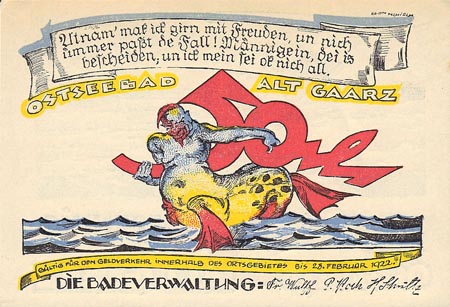 Utnam' mak ick girn mit Freuden, un nich
ümmer paßt de Fall! Männigein, dei is
bescheiden, un ick mein sei ok nich all.
OSTSEEBAD ALT GAARZ
50 Pf
GÜLTIG FÜR DEN GELDVERKEHR INNERHALB DES ORTSGEBIETES BIS 28. FEBRUAR 1922.
DIE BADEVERWALTUNG: